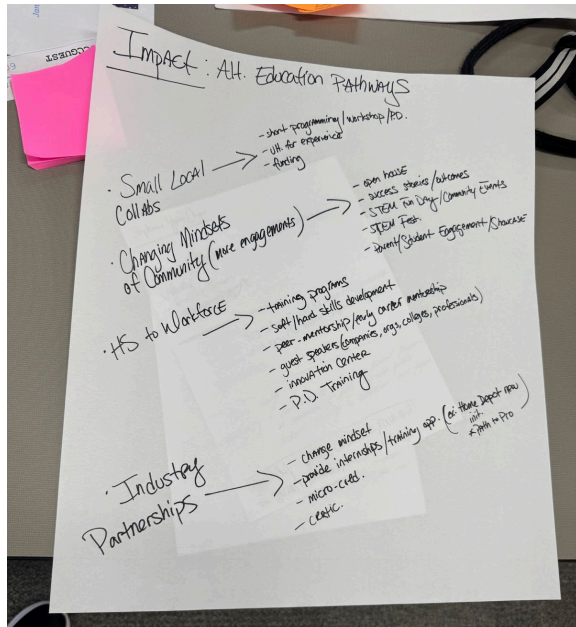 Impact: Alt. Education Pathways
· Small Local
Collabs
- short programming/workshop/P.D.
- funding
· Changing Mindsets
of Community (more engagements)
- open house
- success stories/outcomes
- STEM Fun Day/Community Events
- STEM Fest.
- Parent/Student Engagement/Showcase
· HS to Workforce
- training programs
- soft/hard skills development
- peer-mentorship/early career mentorship
- guest speakers (companies, orgs, colleges, professionals)
- innovation Center
- P.D. Training
· Industry
Partnerships
- change mindset
- provide internships/training opp. (ex: Home Depot new
init.
*Path to Pro)
- micro-cred.